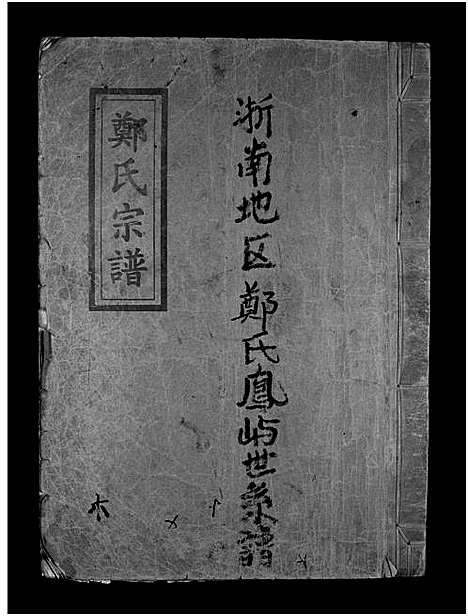 浙南地区鄭氏鳳屿世系譜
鄭氏宗譜
木